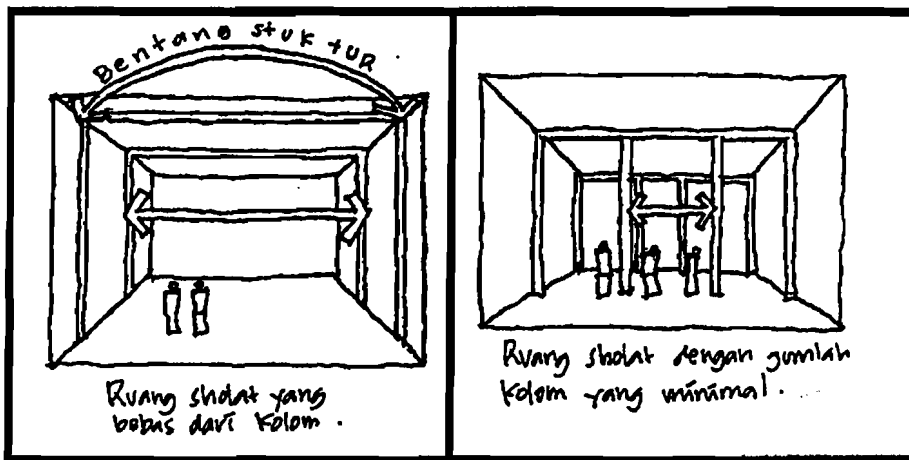 Bentang stuktur
Ruang sholat yang
bebas dari kolom.
Ruang sholat dengan jumlah
kolom yang minimal.